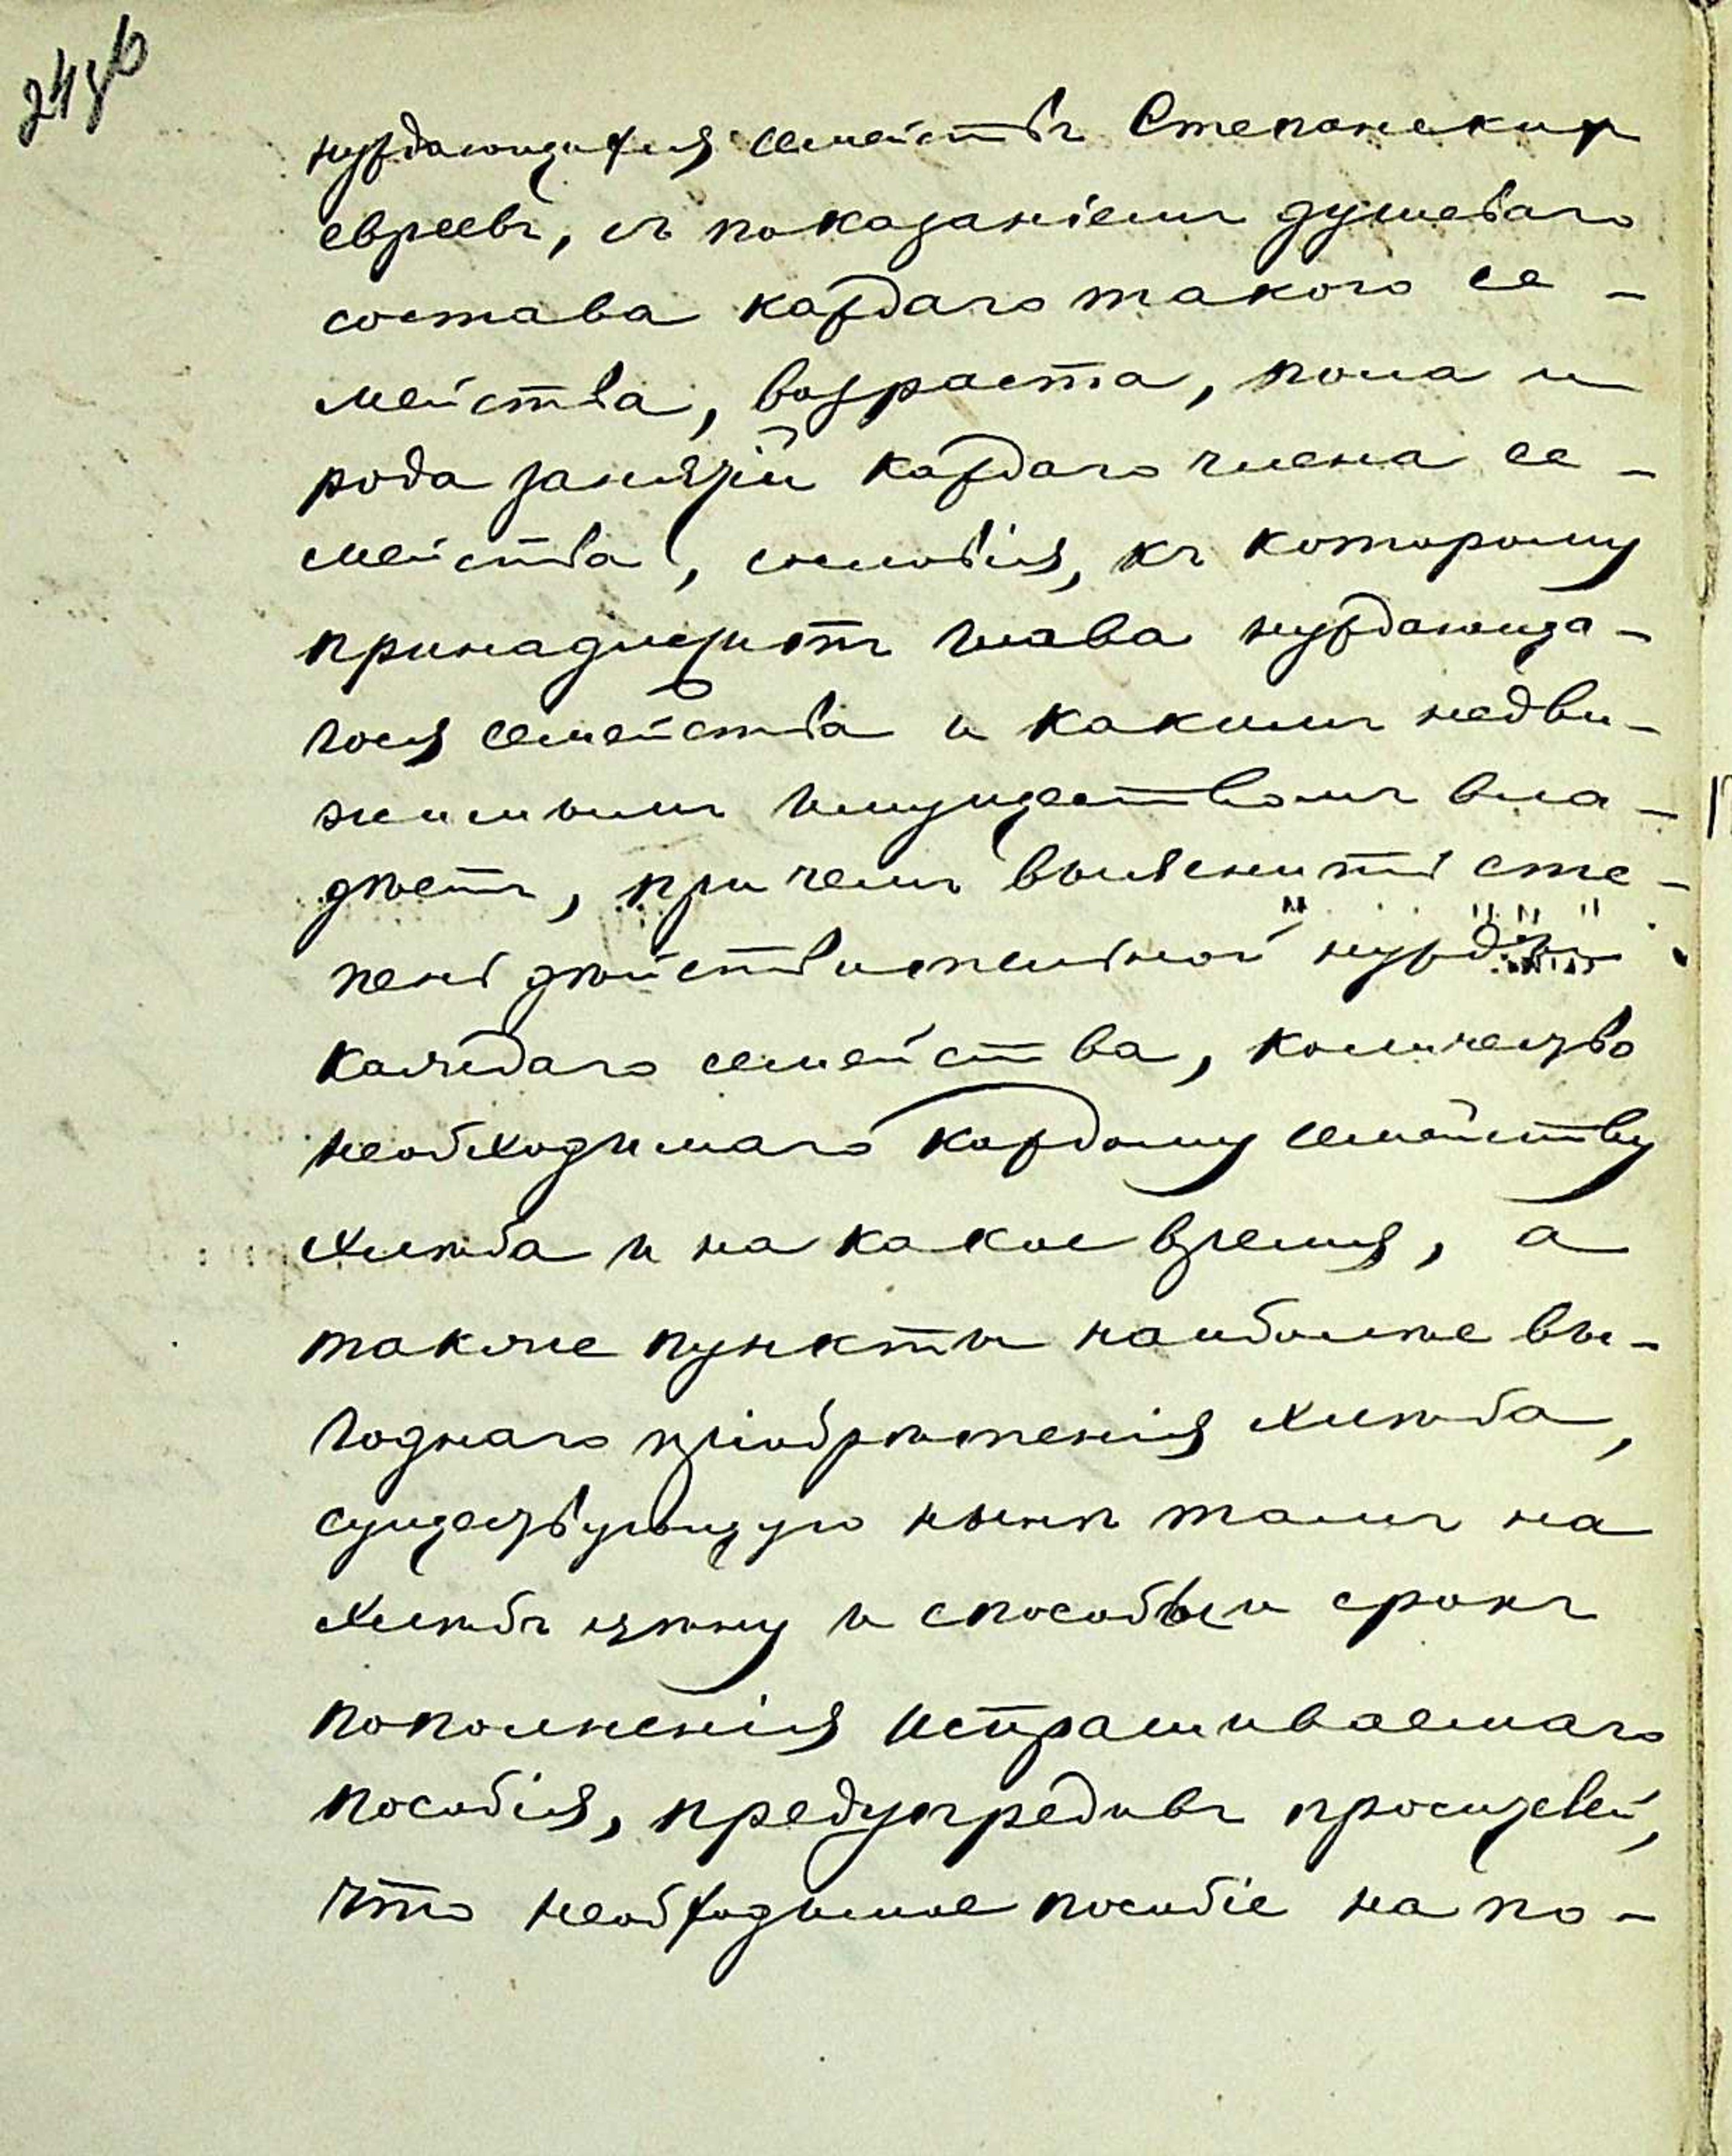 нуждающихся семействъ Степанских
евреевъ, съ показаніемъ душеваго
состава каждаго такого се-
мейства, возраста, пола и
рода занятій каждаго члена се-
мейства, сословія, къ которому
принадлежитъ глава нуждающа-
гося семейства и какимъ недви-
жимымъ имуществомъ вла-
дѣетъ, при чемъ выяснить сте-
пень дѣйствительной нужды
каждаго семейства, количество
необходимаго каждому семейству
хлѣба и на какое время, а
также пункты наиболѣе вы-
годнаго пріобрѣтенія хлѣба,
существующую нынѣ тамъ на
хлѣбъ цѣну и способы и срокъ
пополненія испрашиваемаго
пособія, предупредивъ просителей,
что необходимое пособіе на по-